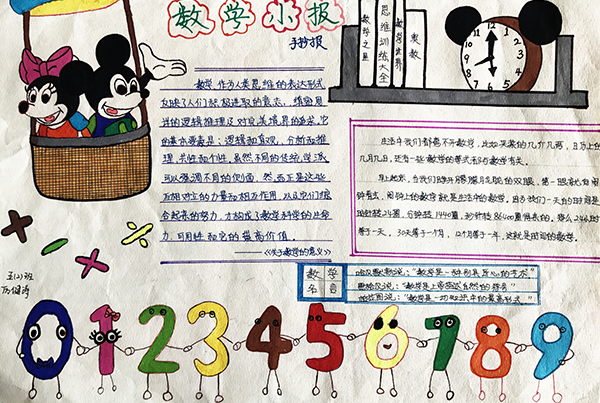 数学小报
手抄报
数学之星
思维训练大全
数学世界
奥数
数学作为人类思维的表达形式
反映了人们积极进取的意志,缜密周
详的逻辑推理及对完美境界的追求,它
的基本要素是:逻辑和直观、分析和推
理、共性和个性.虽然不同的传统学派
可以强调不同的侧面,然而正是这些
互相对立的力量和相互作用,以及它们综
合起来的努力,才构成了数学科学的生命
力、可用性和它的崇高价值.
——《关于数学的意义》
生活中我们都离不开数学,比如买菜的几斤几两,日历上的
几月几日,还有一些数学的等式都与数学有关。
早上起来,当我们睁开朦朦胧胧的双眼,第一眼看的闹
钟看去,闹钟上的数学就是生活中的数学。因为我们一天的时间是
由时针转24圈,分钟转1440圈,秒针转86400圈得来的。那么24小时
等于一天,30天等于一个月,12个月等于一年,这就是时间的数学.
五(2)班
数学名言
哈尔莫斯说:"数学是一种别具匠心的艺术"
黑格尔说:"数学是上帝描述自然的符号"
柏拉图说:"数学是一切知识中的最高形式"
0 1 2 3 4 5 6 7 8 9